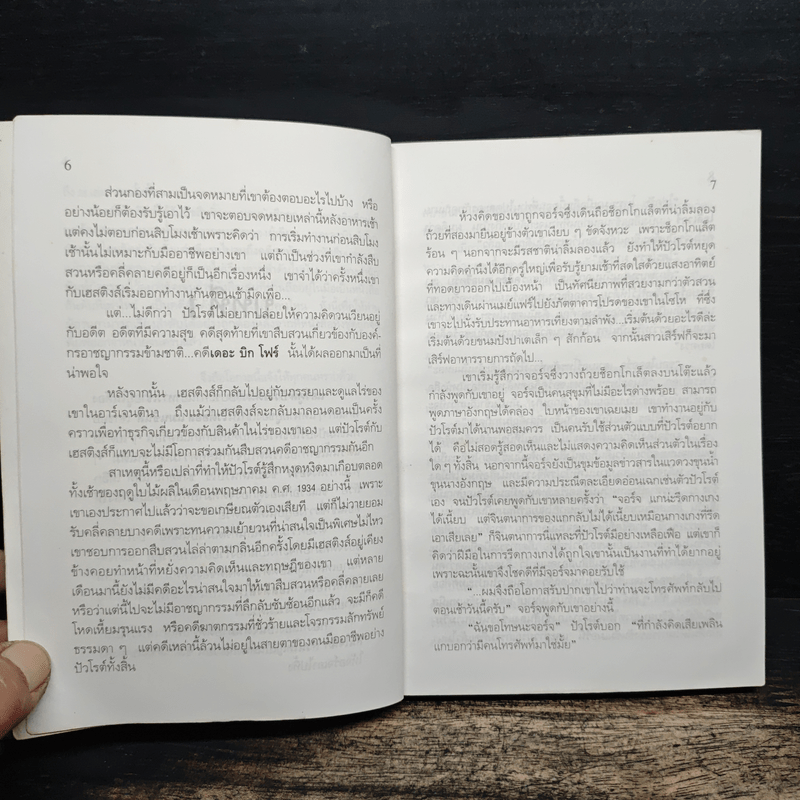 6
ส่วนกองที่สามเป็นจดหมายที่เขาต้องตอบอะไรไปบ้าง หรือ
อย่างน้อยก็ต้องรับรู้เอาไว้ เขาจะตอบจดหมายเหล่านี้หลังอาหารเช้า
แต่คงไม่ตอบก่อนสิบโมงเช้าเพราะคิดว่า การเริ่มทำงานก่อนสิบโมง
เช้านั้นไม่เหมาะกับมืออาชีพอย่างเขา แต่ถ้าเป็นช่วงที่เขากำลังสืบ
สวนหรือคลี่คลายคดีอยู่ก็เป็นอีกเรื่องหนึ่ง เขาจำได้ว่าครั้งหนึ่งเขา
กับเฮสติงส์เริ่มออกทำงานกันตอนเช้ามืดเพื่อ...
แต่...ไม่ดีกว่า ปัวโรต์ไม่อยากปล่อยให้ความคิดวนเวียนอยู่
กับอดีต อดีตที่มีความสุข คดีสุดท้ายที่เขาสืบสวนเกี่ยวข้องกับองค์-
กรอาชญากรรมข้ามชาติ...คดีเดอะ บิก โฟร์ นั้นได้ผลออกมาเป็นที่
น่าพอใจ
หลังจากนั้น เฮสติงส์ก็กลับไปอยู่กับภรรยาและดูแลไร่ของ
เขาในอาร์เจนตินา ถึงแม้ว่าเฮสติงส์จะกลับมาลอนดอนเป็นครั้ง
คราวเพื่อทำธุรกิจเกี่ยวข้องกับสินค้าในไร่ของเขาเอง แต่ปัวโรต์กับ
เฮสติงส์ก็แทบจะไม่มีโอกาสร่วมกันสืบสวนคดีอาชญากรรมกันอีก
สาเหตุนี้หรือเปล่าที่ทำให้ปัวโรต์รู้สึกหงุดหงิดมาเกือบตลอด
ทั้งเช้าของฤดูใบไม้ผลิในเดือนพฤษภาคม ค.ศ. 1934 อย่างนี้ เพราะ
เขาเองประกาศไปแล้วว่าจะขอเกษียณตัวเองเสียที แต่ก็ไม่วายยอม
รับคลี่คลายบางคดีเพราะทนความเย้ายวนที่น่าสนใจเป็นพิเศษไม่ไหว
เขาชอบการออกสืบสวนไล่ล่าตามกลิ่นอีกครั้งโดยมีเฮสติงส์อยู่เคียง
ข้างคอยทำหน้าที่หยั่งความคิดเห็นและทฤษฎีของเขา แต่หลาย
เดือนมานี้ยังไม่มีคดีอะไรน่าสนใจมาให้เขาสืบสวนหรือคลี่คลายเลย
หรือว่าแต่นี้ไปจะไม่มีอาชญากรรมที่ลึกลับซับซ้อนอีกแล้ว จะมีก็คดี
โหดเหี้ยมรุนแรง หรือคดีฆาตกรรมที่ชั่วร้ายและโจรกรรมลักทรัพย์
ธรรมดา ๆ แต่คดีเหล่านี้ล้วนไม่อยู่ในสายตาของคนมืออาชีพอย่าง
ปัวโรต์ทั้งสิ้น
7
ห้วงคิดของเขาถูกจอร์จซึ่งเดินถือช็อกโกแล็ตที่น่าลิ้มลอง
ถ้วยที่สองมายืนอยู่ข้างตัวเขาเงียบ ๆ ขัดจังหวะ เพราะช็อกโกแล็ต
ร้อน ๆ นอกจากจะมีรสชาติน่าลิ้มลองแล้ว ยังทำให้ปัวโรต์หยุด
ความคิดคำนึงได้อีกครู่ใหญ่เพื่อรับรู้ยามเช้าที่สดใสด้วยแสงอาทิตย์
ที่ทอดยาวออกไปเบื้องหน้า เป็นทัศนียภาพที่สวยงามกว่าตัวสวน
และทางเดินผ่านเมย์แฟร์ไปยังภัตตาคารโปรดของเขาในโซโห ที่ซึ่ง
เขาจะไปนั่งรับประทานอาหารเที่ยงตามลำพัง...เริ่มต้นด้วยอะไรดีล่ะ
เริ่มต้นด้วยขนมปังปาเตเล็ก ๆ สักก้อน จากนั้นสาวเสิร์ฟก็จะมา
เสิร์ฟอาหารรายการถัดไป...
เขาเริ่มรู้สึกว่าจอร์จซึ่งวางถ้วยช็อกโกแล็ตลงบนโต๊ะแล้ว
กำลังพูดกับเขาอยู่ จอร์จเป็นคนสุขุมที่ไม่มีอะไรด่างพร้อย สามารถ
พูดภาษาอังกฤษได้คล่อง ใบหน้าของเขาเฉยเมย เขาทำงานอยู่กับ
ปัวโรต์มาได้นานพอสมควร เป็นคนรับใช้ส่วนตัวแบบที่ปัวโรต์อยาก
ได้ คือไม่สอดรู้สอดเห็นและไม่แสดงความคิดเห็นส่วนตัวในเรื่อง
ใด ๆ ทั้งสิ้น นอกจากนี้จอร์จยังเป็นขุมข้อมูลข่าวสารในแวดวงขุนน้ำ
ขุนนางอังกฤษ และมีความประณีตละเอียดอ่อนเฉกเช่นตัวปัวโรต์
เอง จนปัวโรต์เคยพูดกับเขาหลายครั้งว่า “จอร์จ แกน่ะรีดกางเกง
ได้เนี้ยบ แต่จินตนาการของแกกลับไม่ได้เนี้ยบเหมือนกางเกงที่รีด
เอาเสียเลย” ก็จินตนาการนี่แหละที่ปัวโรต์มีอย่างเหลือเฟือ แต่เขาก็
คิดว่าฝีมือในการรีดกางเกงได้ถูกใจเขานั้นเป็นงานที่ทำได้ยากอยู่
เพราะฉะนั้นเขาจึงโชคดีที่มีจอร์จมาคอยรับใช้
“...ผมจึงถือโอกาสรับปากเขาไปว่าท่านจะโทรศัพท์กลับไป
ตอนเช้าวันนี้ครับ” จอร์จพูดกับเขาอย่างนี้
“ฉันขอโทษนะจอร์จ” ปัวโรต์บอก “ที่กำลังคิดเสียเพลิน
แกบอกว่ามีคนโทรศัพท์มาใช่มั้ย”